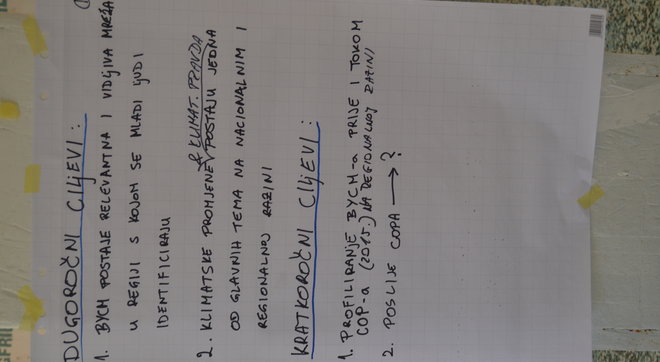 DUGOROČNI CILJEVI:
1. BYCM POSTAJE RELEVANTNA I VIDLJIVA MREŽA
U REGIJI S KOJOM SE MLADI LJUDI
IDENTIFICIRAJU
& KLIMAT. PRAVDA
2. KLIMATSKE PROMJENE POSTAJU JEDNA
OD GLAVNIH TEMA NA NACIONALNIM I
REGIONALNOJ RAZINI
KRATKOROČNI CILJEVI:
1. PROFILIRANJE BYCM-a PRIJE I TOKOM
COP-a (2015.) NA REGIONALNOJ RAZINI
2. POSLIJE COPA → ?